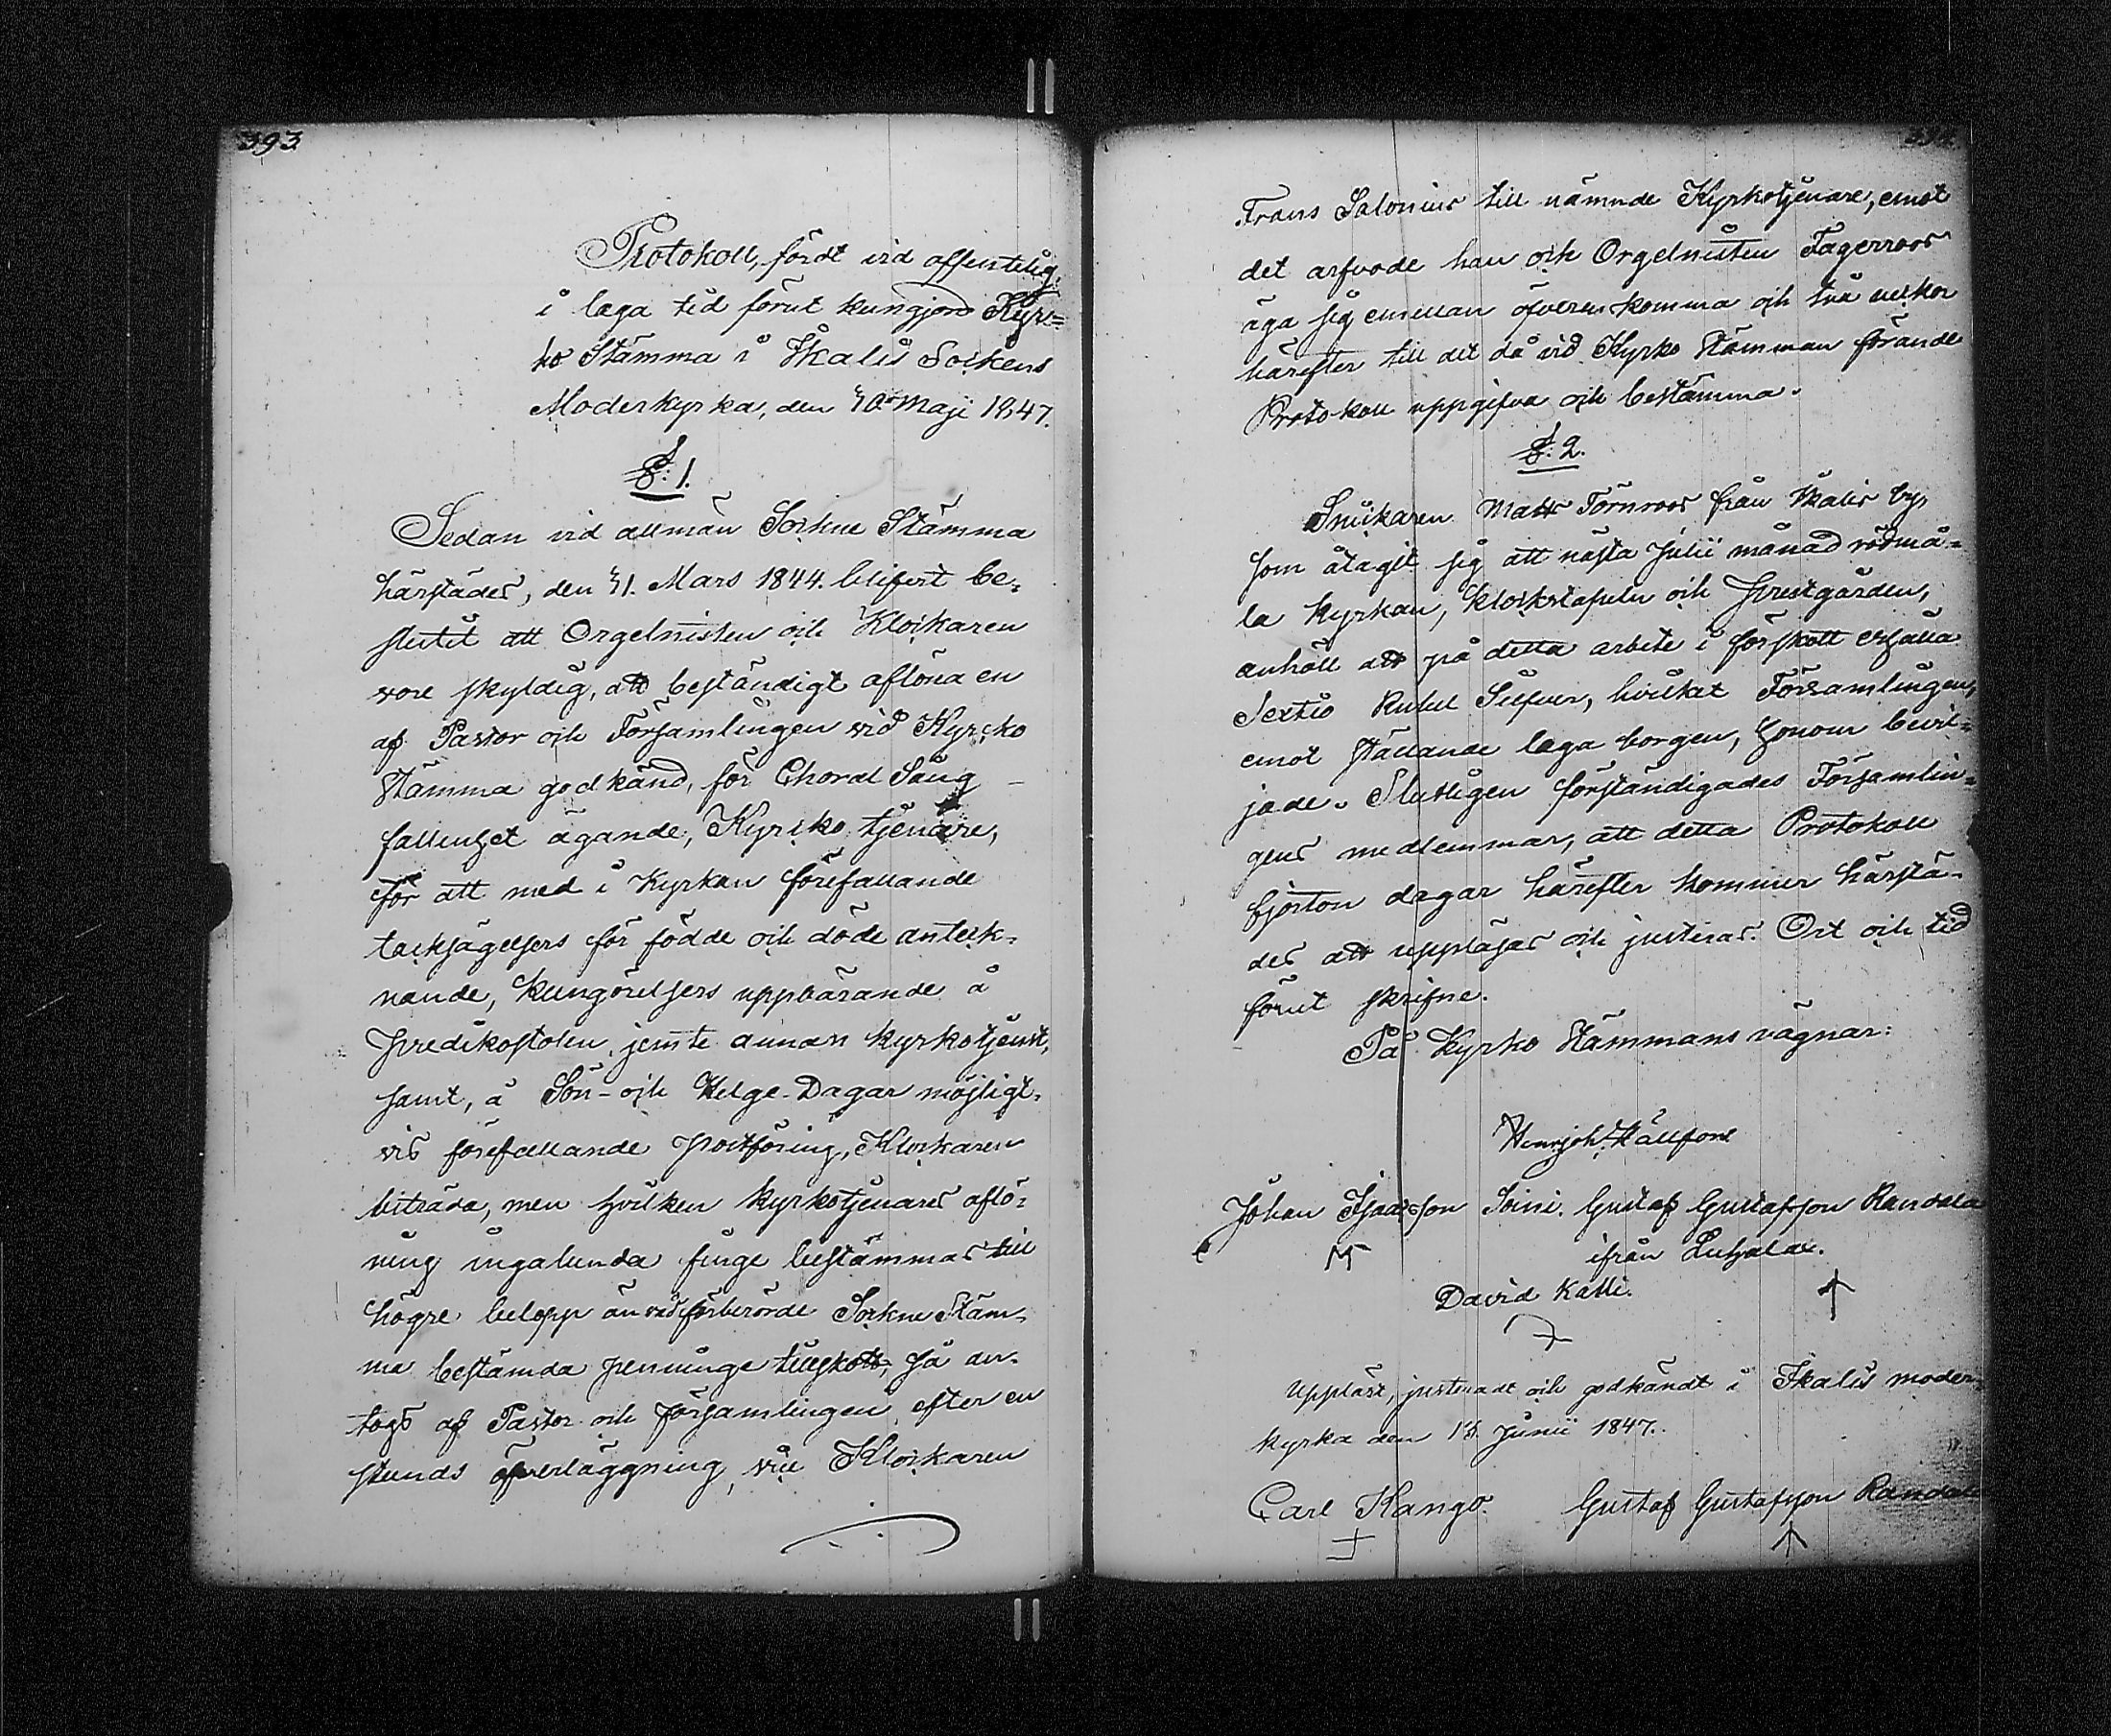 393
Protokoll, fördt vid offentelig,
i laga tid förut kungjord Kyr=
ko Stämma i Ikalis Sockens
Moderkyrka, den 30 Maji 1847.
§: 1.
Sedan vid allmän Sockne Stämma
härstädes, den 31. Mars 1844. blifvit be-
slutit att Orgelnisten och Klockaren
vore skyldig, att beständigt aflöna en
af Pastor och Församlingen vid Kyrcko
Stämma godkänd, för Choral Sång
fallenhet ägande, Kyrcko tjenare,
för att med i Kyrkan förefallande
tacksägelsers för födde och döde anteck-
nande, Kungörelsers uppbärande å
Predikostolen, jemte annan kyrkotjenst,
samt, å Sön- och Helge-Dagar möjligt-
vis förefallande postföring, Klockaren
biträda, men hvilken kyrkotjenares aflö-
ning ingalunda finge bestämmas till
högre belopp än vid förberörde Sockne Stäm-
ma bestämda penninge tillskott, så an-
togs af Pastor och församlingen, efter en
stunds öfverläggning, vice Klockaren
Frans Salonius till nämnde Kyrkotjenare, emot
det arfvode han och Orgelnisten Fagerroos
äga sig emellan öfverenskomma och två veckor
härefter till det då vid Kyrko Stämman förande
Protokoll uppgifva och bestämma.
§: 2.
Snickaren Matts Törnroos från Ikalis by,
som åtagit sig att nästa Julii månad rödmå=
la kyrkan, klockstapeln och Prestgården,
anhöll att på detta arbete i förskott erhålla
Sextio Rubel Silfver, hvilket Församlingen,
emot ställande laga borgen, honom bevil=
jade. Slutligen förständigades Församlin=
gens medlemmar, att detta Protokoll
fjorton dagar härefter kommer härstä-
des att uppläsas och justeras. Ort och tid
förut skrifne.
På Kyrko Stämmans vägnar:
Henr Joh. Hällfors
Johan Isaacsson Soini. Gustaf Gustafsson Randala
ifrån Luhalax.
David Kalli.
Uppläst, justeradt och godkändt i Ikalis moder=
kyrka den 13 Junii 1847.
Carl Kango. Gustaf Gustafsson Randala